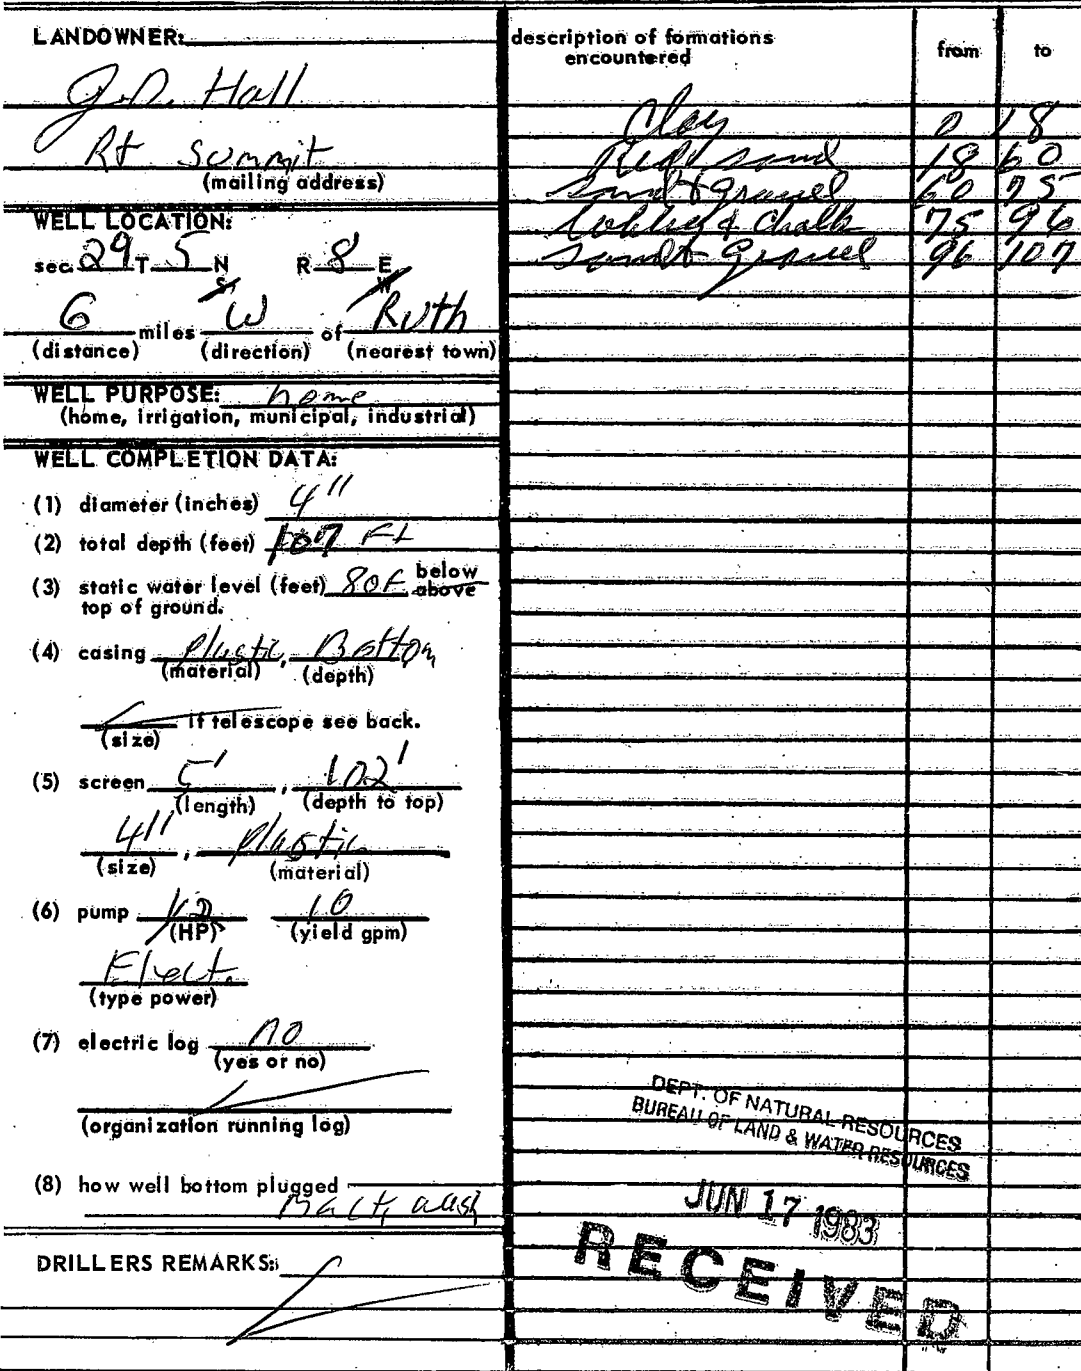 LANDOWNER:
J.D. Hall
Rt Summit
(mailing address)
WELL LOCATION:
sec. 29 T 5 N R 8 E
S W
6 miles W of Ruth
(distance) (direction) (nearest town)
WELL PURPOSE: home
(home, irrigation, municipal, industrial)
WELL COMPLETION DATA:
(1) diameter (inches) 4"
(2) total depth (feet) 107 Ft
(3) static water level (feet) 80F below
above
top of ground.
(4) casing Plastic, Bottom
(material) (depth)
if telescope see back.
(size)
(5) screen 5', 102'
(length) (depth to top)
4", Plastic
(size) (material)
(6) pump 1/2 10
(HP) (yield gpm)
Elect.
(type power)
(7) electric log no
(yes or no)
(organization running log)
(8) how well bottom plugged
wash
DRILLERS REMARKS:
description of formations
encountered
from to
Clay 0 18
Red sand 18 60
Sand & Gravel 60 75
& Chalk 75 96
Sand & Gravel 96 107
DEPT. OF NATURAL RESOURCES
BUREAU OF LAND & WATER RESOURCES
JUN 17 1983
RECEIVED